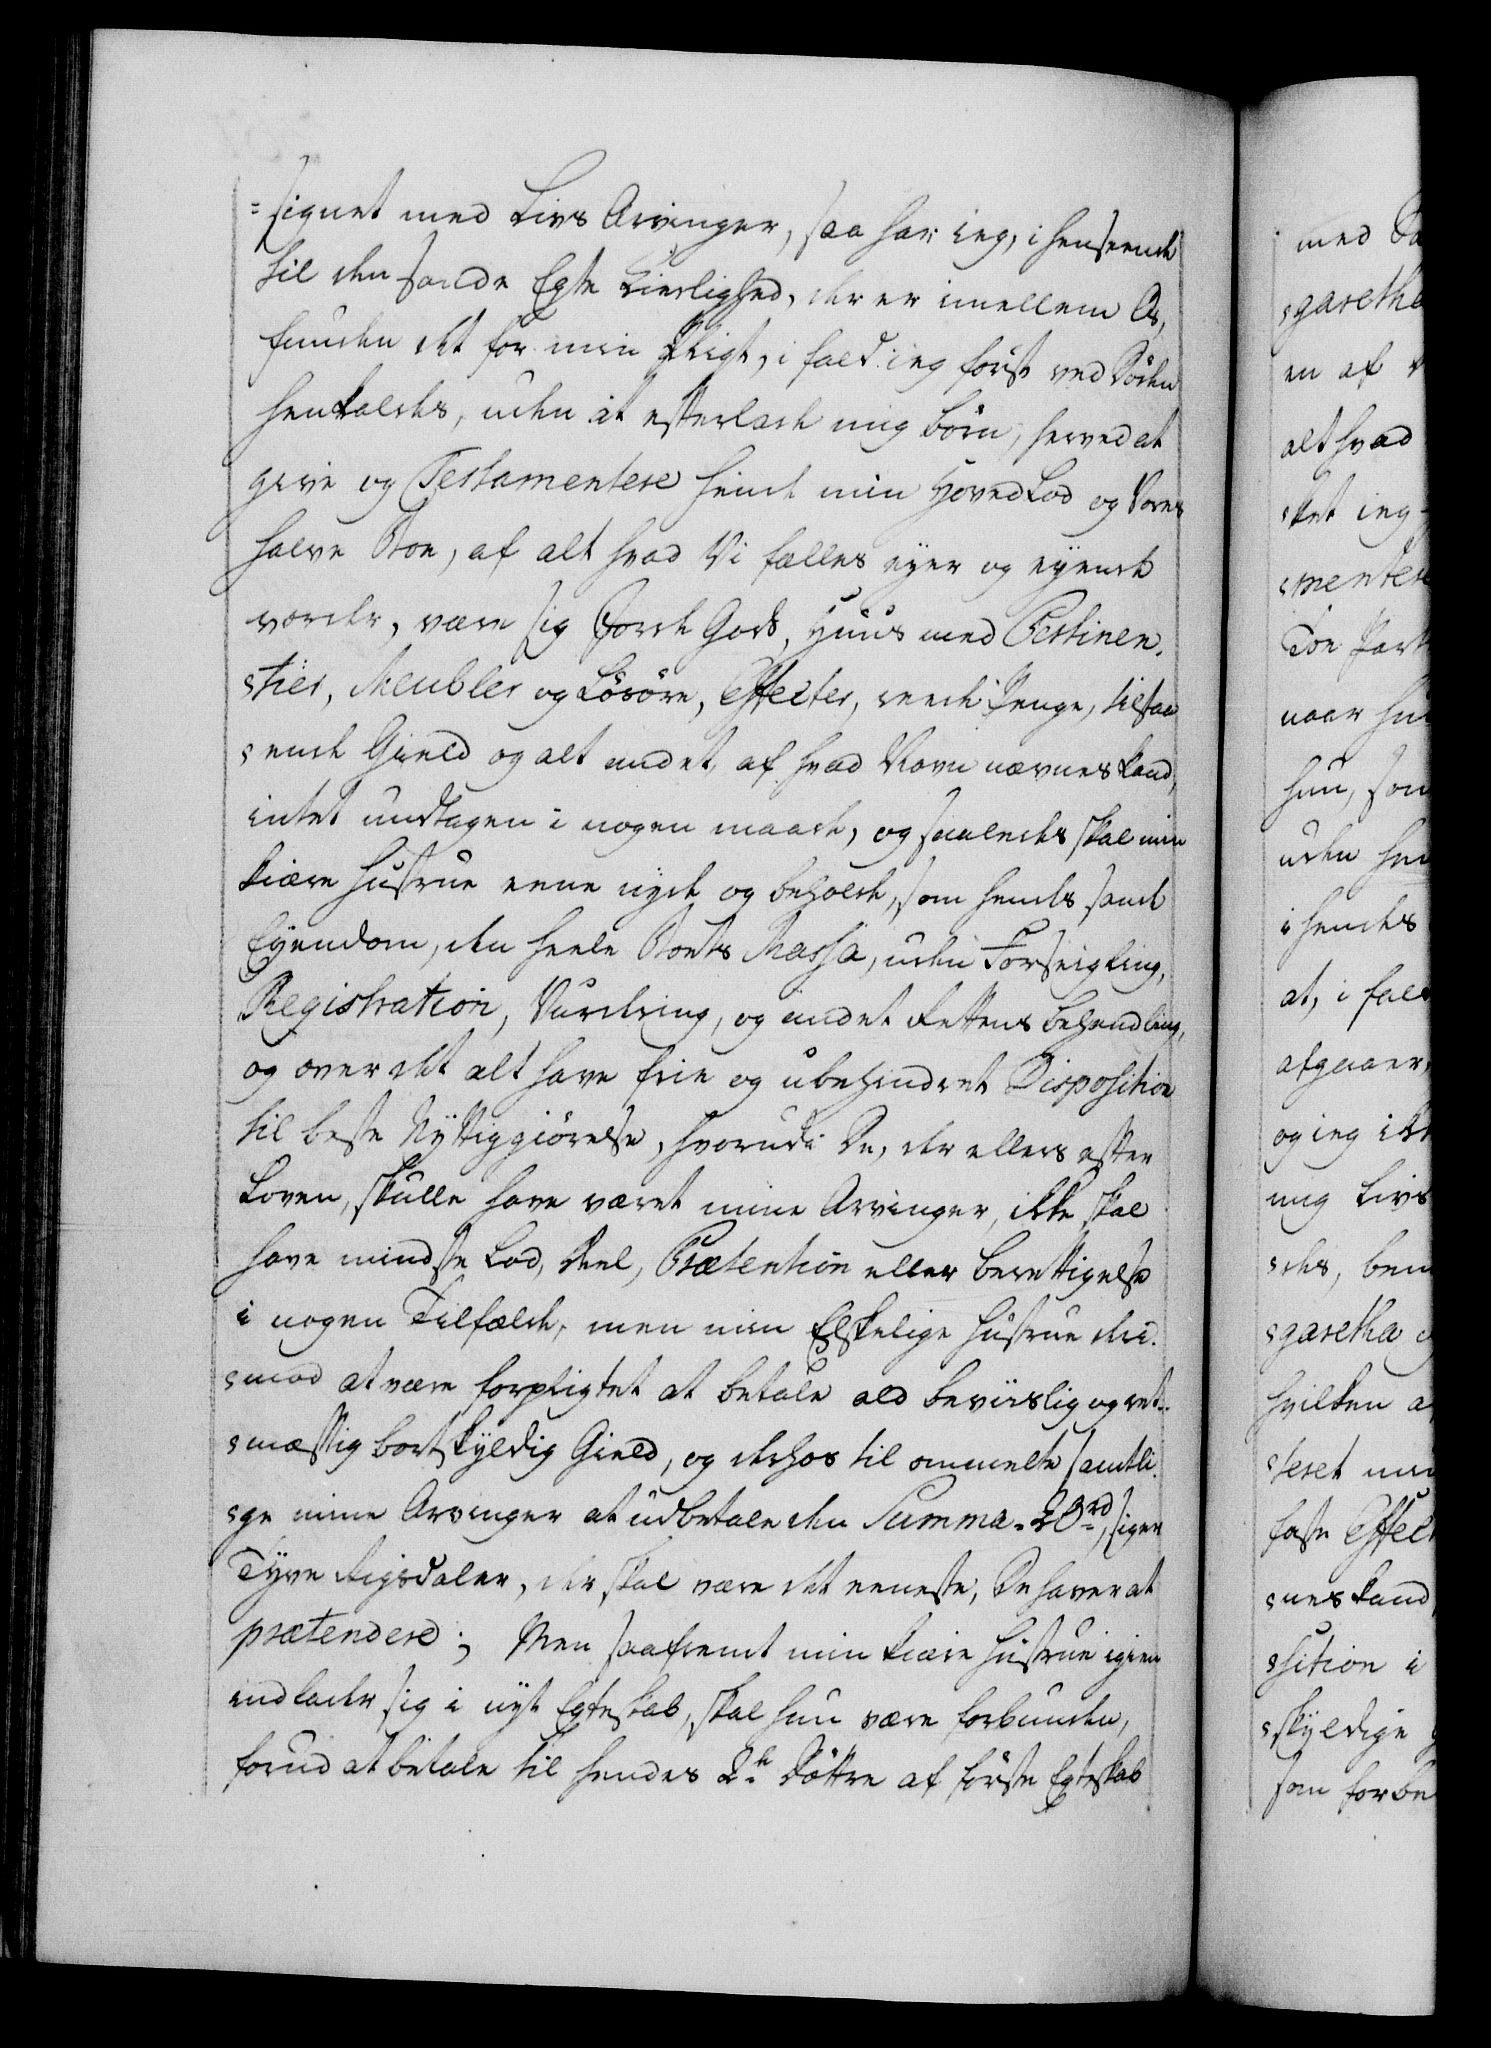 =signet med Livs Arvinger, saa har ieg, i henseende
til den sande Egte Kierlighed, der er imellem Os,
funden det for min Pligt, i fald ieg først ved Döden
henkaldes, uden at efterlade mig börn, herved at
give og Testamentere hende min HovedLod og Vores
halve Boe, af alt hvad Vi fælles eyer og eyende
vorder, være sig Jorde Gods, Huus med Pertinen-
=tier, Meubler og Lösöre, Effecter, reede Penge, tilstaa
=ende Gield og alt andet, af hvad Navn nævnes kand,
intet undtagen i nogen maade, og saaledes skal min
kiære Hustrue eene nyde og beholde, som hendes sande
Eyendom, den heele Boets Massa, uden Forseigling,
Registration, Vurdering, og andet Rettens behandling,
og over det alt have frie og ubehindret Disposition
til beste Nyttiggiörelse, hvorudi De, der ellers efter
Loven, skulle have været mine Arvinger, ikke skal
have mindste Lod, Deel, Prætention eller berettigelse
i nogen Tilfælde, men min Elskelige Hustrue der-
=mod at være forpligtet at betale ald beviislig og ret-
=mæssig bortskyldig Gield, og derhos til ommelte samtli-
=ge mine Arvinger at udbetale den Summa 20 rd, siger
Tyve Rigsdaler, der skal være det eeneste, De haver at
prætendere; Men saafremt min kiære Hustrue igien
indlader sig i nyt Egteskab, skal hun være forbunden,
forud at betale til hendes 2de Döttre af første Egteskab
med
=garethe
en af
alt hvad
=ket ieg
=mentere
Toe Part
naar hu
hun, som
uden hen
i hendes
at, i fald
afgaaer,
og ieg ikk
mig Livs
=des, ben
=garetha
hvilken a
=teret
faste Effec
=nes kand,
=sition i
=skyldige
som forbe